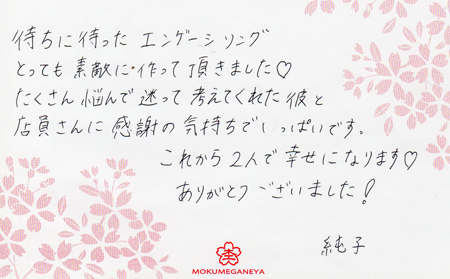 待ちに待った エンゲージリング
とっても 素敵に作って頂きました♡
たくさん 悩んで 迷って 考えてくれた 彼と
店員さんに 感謝の 気持ちでいっぱいです。
これから 2人で 幸せになります♡
ありがとうございました!
純子
MOKUMEGANEYA